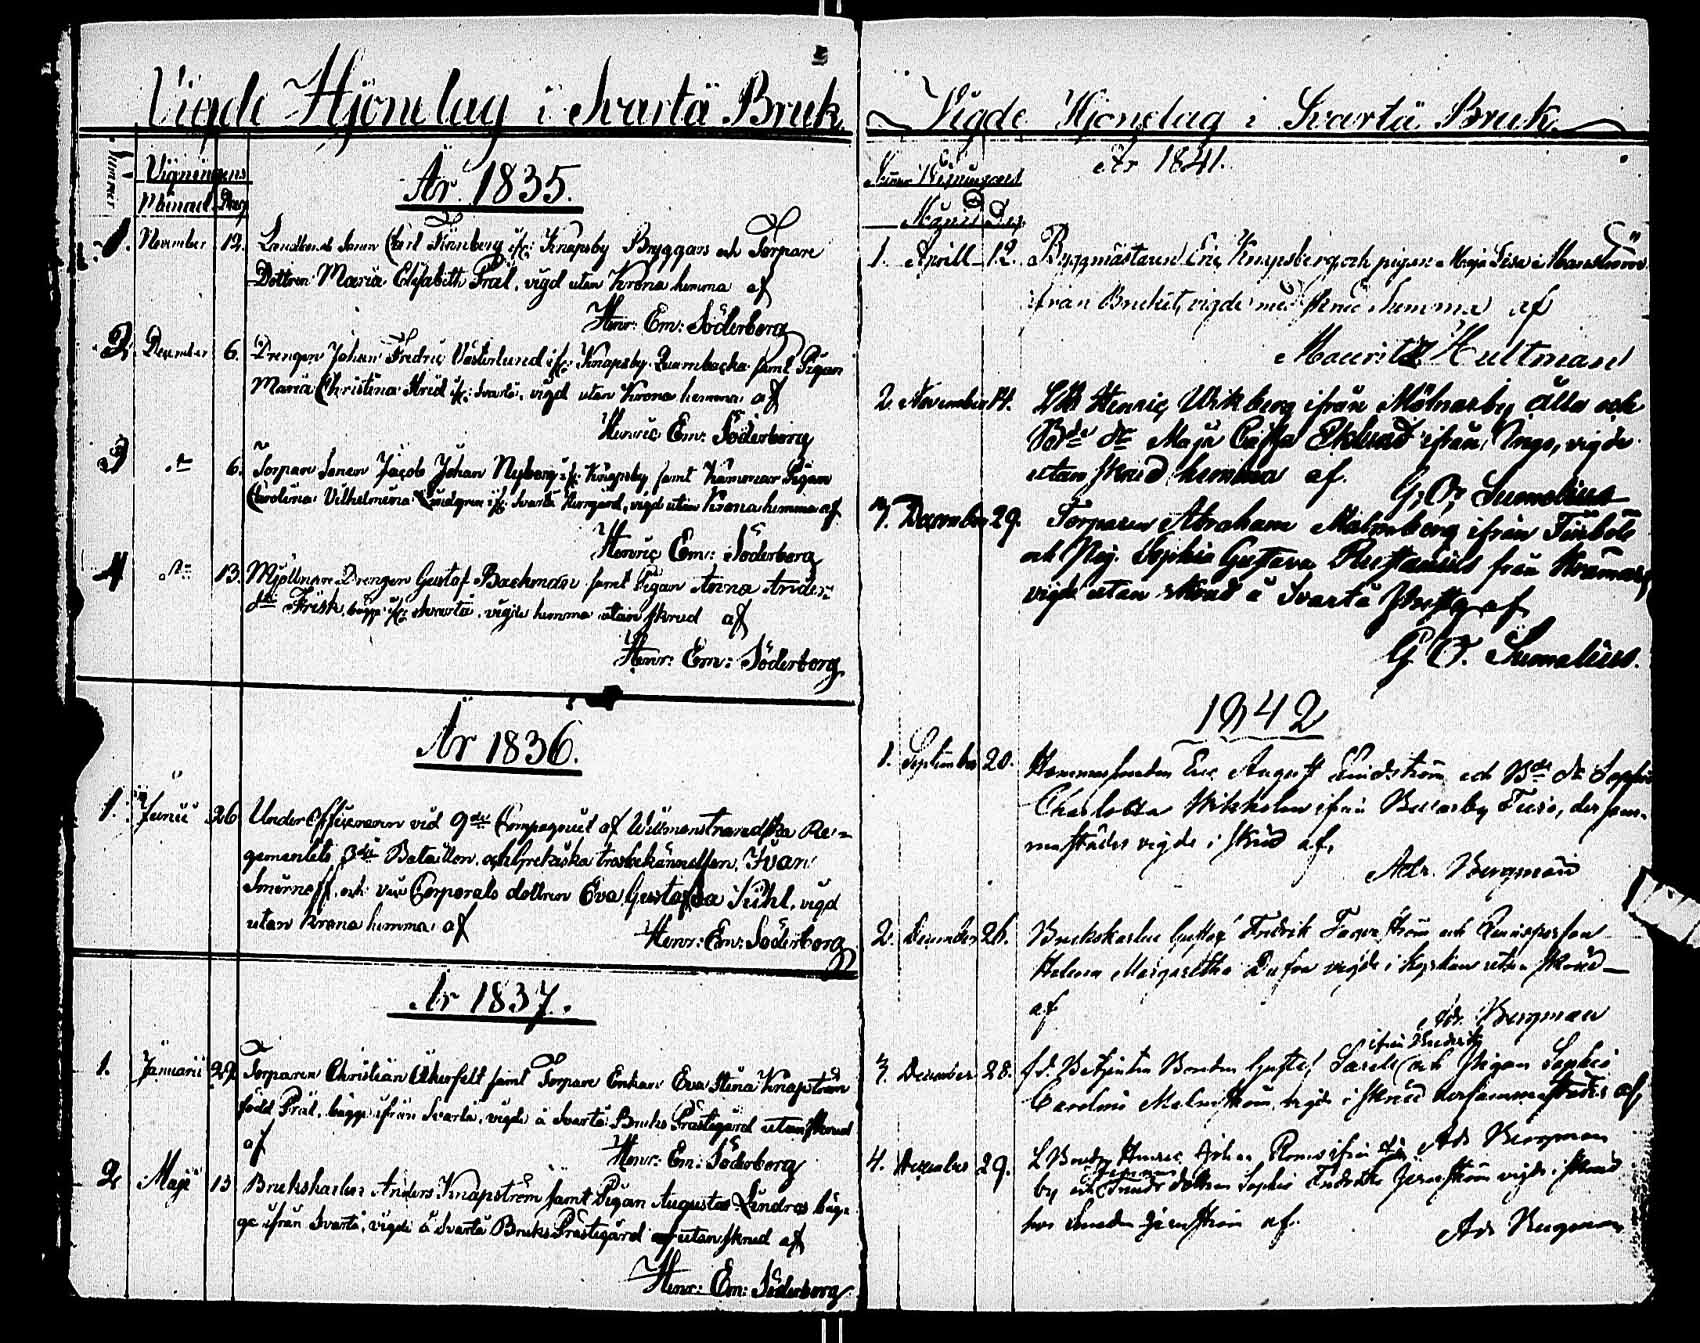 Vigde Hjonelag i Svartå Bruk
Nummer
Vigningens
Månad. Dag
År 1835.
1. November 12. Landbonde Sonen Carl Feinberg ifr: Knapsby Bryggars och Torpare
Dottren Maria Elisabeth Prål, vigd utan Krona hemma af
Henr: Em: Söderberg
2. December 6. Drengen Johan Fredric Västerlund ifr: Knapsby Qvarnbacka samt Pigan
Maria Christina Strid ifr: Svartå, vigd utan Krona hemma af
Henric Em: Söderberg
3 dn 6. Torpare Sonen Jacob Johan Nyberg ifr: Knapsby samt Kammar Pigan
Carolina Vilhelmina Lindgren ifr: Svartå herrgård, vigd utan Krona hemma af
Henric Em: Söderberg
4 dn 13. Mjöllnare Drengen Gustaf Backman samt Pigan Anna
Frisk, bägge ifr: Svartå, vigde hemma utan skrud af
Henr: Em: Söderberg
År 1836.
1. Junii 26 Under Officeraren vid 9de Compagniet af Willmanstrandska Re-
gementets 3dje Bataillon, och Grekiska trosbekännelsen, Ivan
Smirnoff, och Corporals dottren Eva Gustafva Kihl, vigd
utan Krona hemma af
Henr: Em: Söderberg
År 1837.
1. Januarii 29. Torparen Christian Åkerfelt samt Torpare Enkan Eva Stina Knapström
född Prål, bägge ifrån Svartå, vigde å Svartå Bruks Prästegård utan skrud
af
Henr: Em: Söderberg
2 Maji 15 Brukskarlen Anders Knapström samt Pigan Augusta Lindros bäg-
ge ifrån Svartå, vigde å Svartå Bruks Prästegård utan skrud af
Henr: Em: Söderberg
Vigde Hjonelag i Svartå Bruk
År 1841.
Vigningens
Månad Dag
1 Aprill 12. Byggmästaren Eric Knapsberg och pigan Maja Lisa
ifrån Bruket, vigde med skrud hemma af
Mauritz Hultman
2. November 14. Henric Wikberg ifrån Mölnarby och
Maja Cajsa Eklund ifrån Ingo, vigde
utan skrud hemma af.
G. O. Sumelius
3. December 29. Torparen Abraham Malmberg ifrån Finbole
och Pig. Sophia Gustava från
vigde utan skrud å Svartå af
G. O. Sumelius.
1842
1. September 20. Hammarsmeden Eric August Lindström och Sophia
Charlotta Wikholm ifrån, der sam-
mastädes vigde i skrud af.
Adr. Bergman
2. December 26. Brukskarlen Gustaf Fredrik Fagerström och
Helena Margaretha vigde i kyrkan utan skrud
af
Adr. Bergman
ifrån Bruket
3. December 28. Gustaf och Pigan Sophia
Carolina Malmström, vigde i skrud dersammastädes af
Adr Bergman
4. December 29. Henric Johan ifrån
by och dottren Sophia Fredrika Jernström vigde i skrud
hos Smeden Jernström af.
Adr Bergman